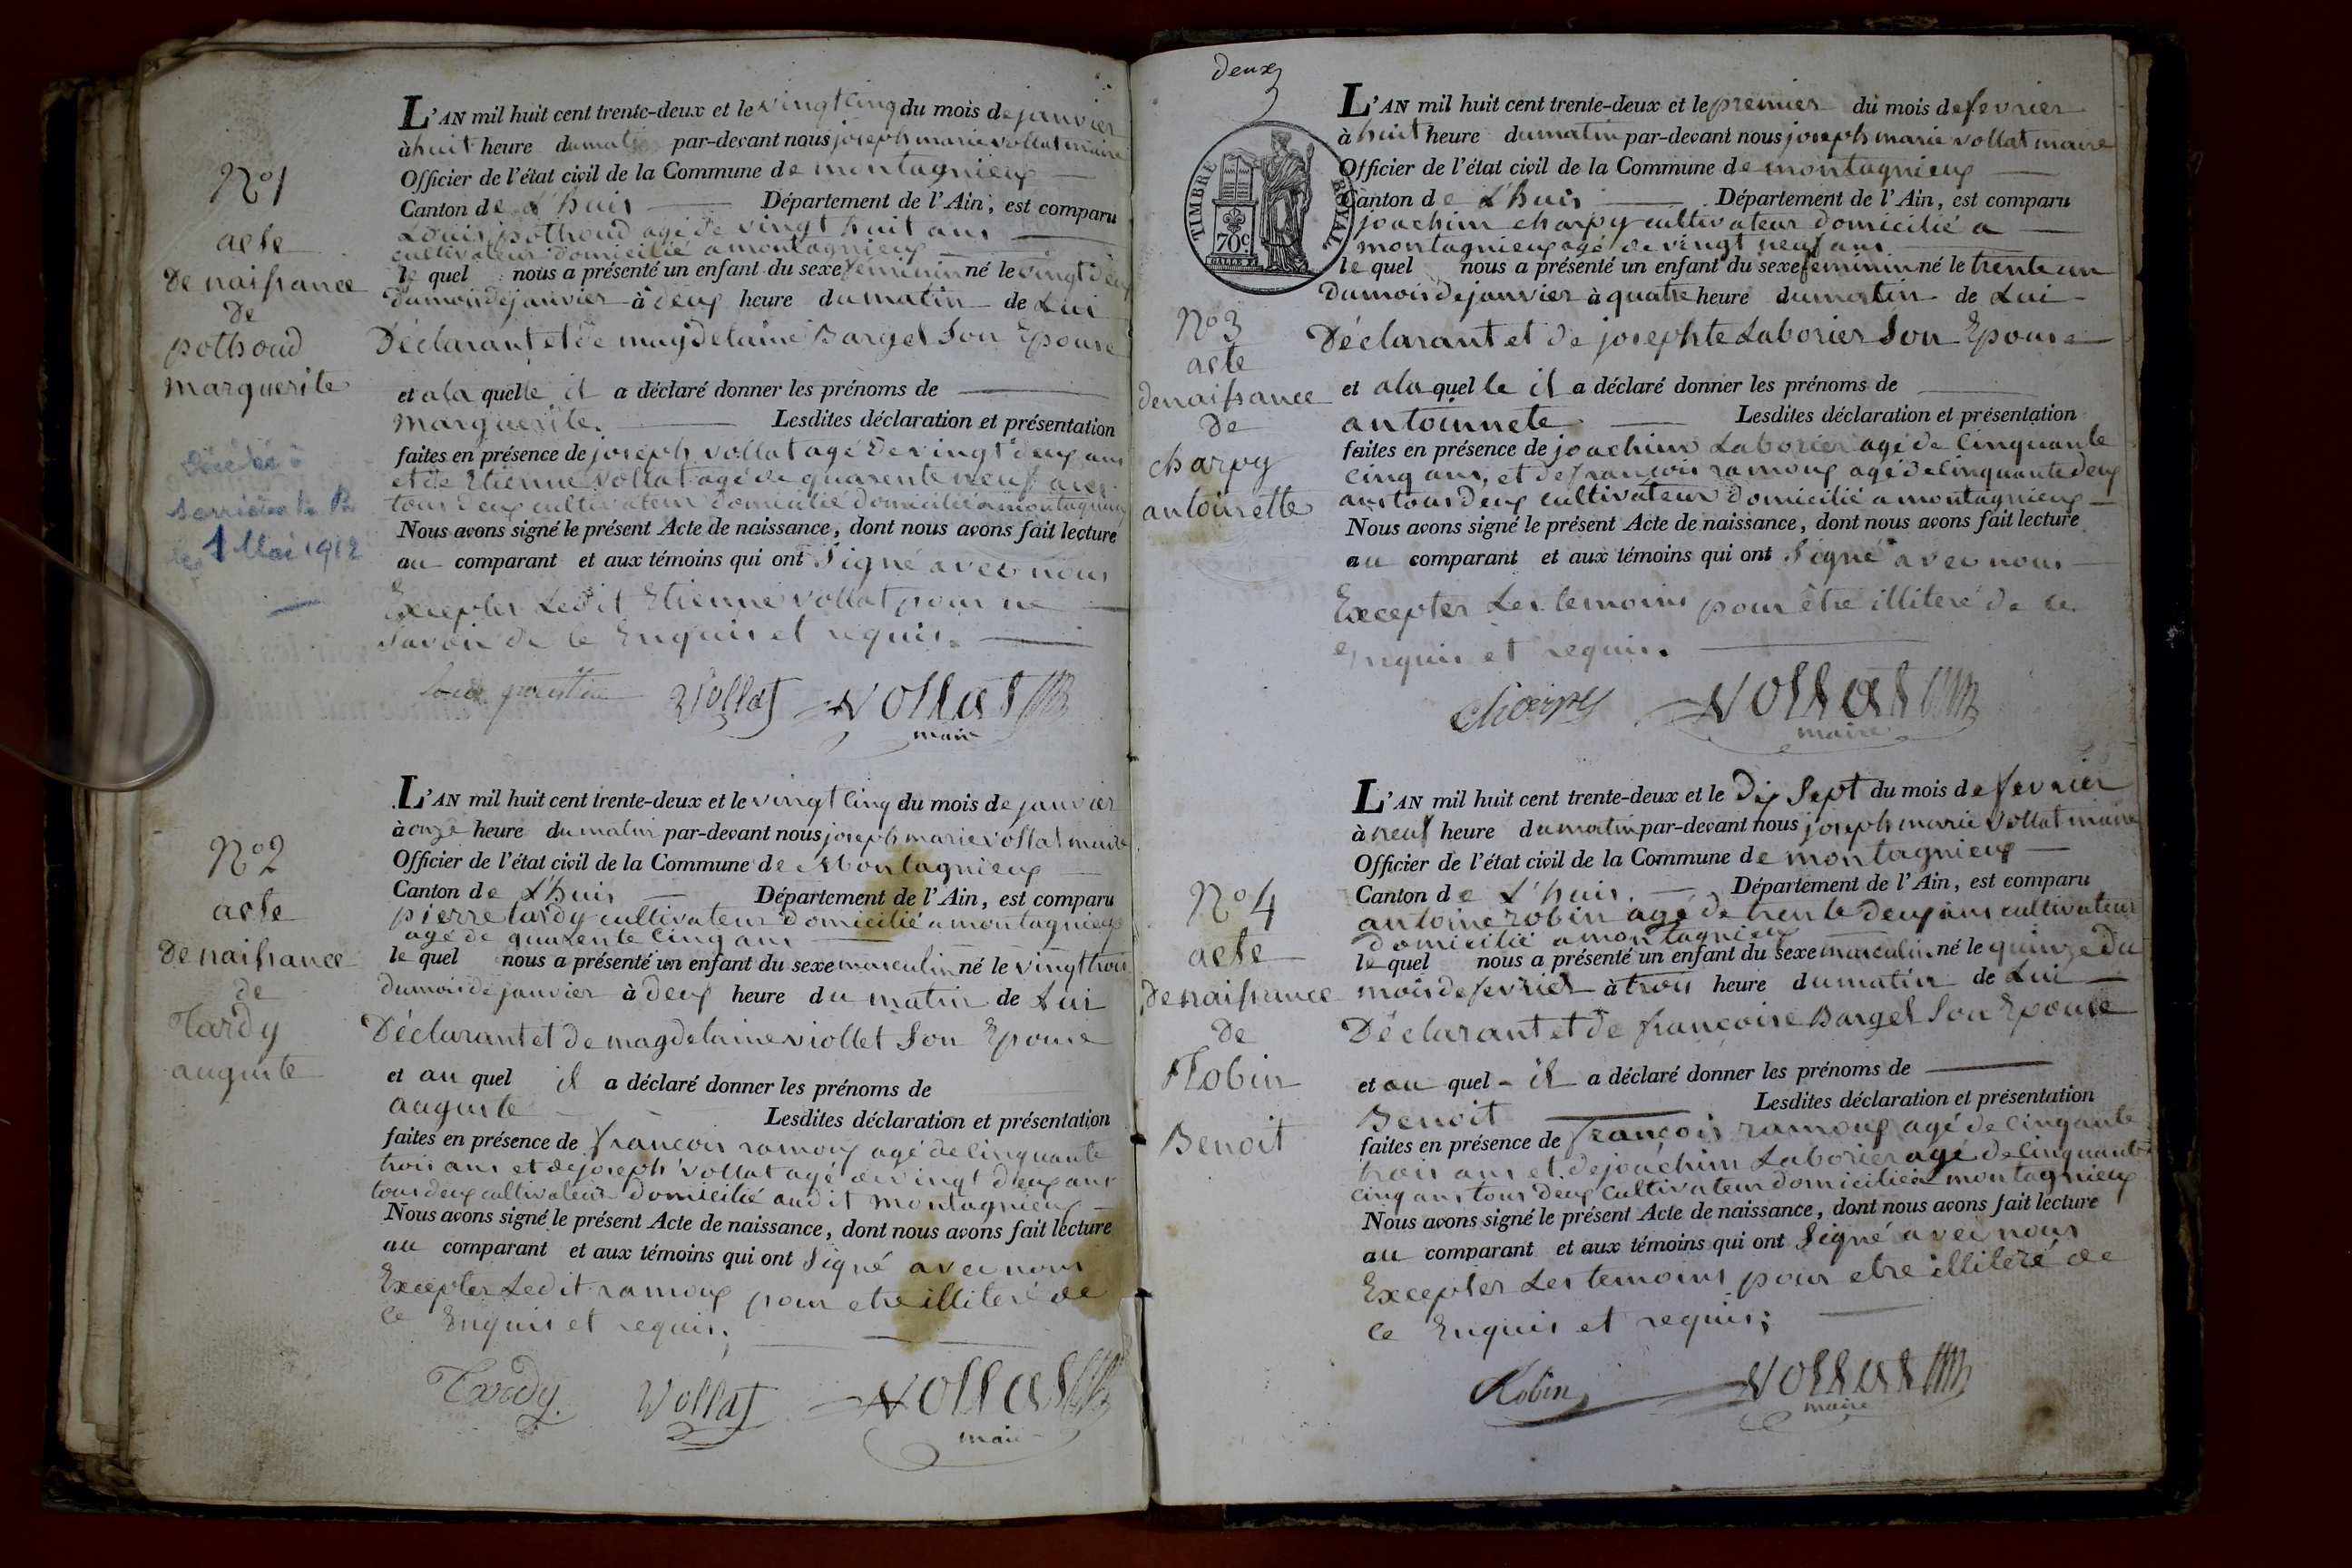 N° 1
acte
de naissance
de
pothoud
marguerite
1 Mai 1912
L'AN mil huit cent trente-deux et le vingt cinq du mois de janvier
à huit heure du matin par-devant nous joseph marie vollat maire
Officier de l'état civil de la Commune de montagnieux
Canton de L'huis Département de l'Ain, est comparu
Louis pothoud agé de vingt huit ans
cultivateur domicilié a montagnieux
le quel nous a présenté un enfant du sexe feminin né le vingt deux
du mois de janvier à deux heure du matin de Lui
Déclarant et de magdelaine Barget Son Epouse
et a la quelle il a déclaré donner les prénoms de
marguerite. Lesdites déclaration et présentation
faites en présence de joseph vollat agé de vingt deux ans
et de Etienne vollat agé de quarente neuf ans
tous deux cultivateur domicilié domicilié a montagnieux
Nous avons signé le présent Acte de naissance, dont nous avons fait lecture
au comparant et aux témoins qui ont Signé avec nous
Excepter Ledit Etienne vollat pour ne
Savoir de ce Enquis et requis.
Vollat Vollat
maire
N° 2
acte
de naissance
de
Tardy
auguste
L'AN mil huit cent trente-deux et le vingt cinq du mois de janvier
à onze heure du matin par-devant nous joseph marie vollat maire
Officier de l'état civil de la Commune de Montagnieux
Canton de L'huis Département de l'Ain, est comparu
pierre tardy cultivateur domicilié a montagnieux
agé de quarente cinq ans
le quel nous a présenté un enfant du sexe masculin né le vingt trois
du mois de janvier à deux heure du matin de Lui
Déclarant et de magdelaine viollet Son Epouse
et au quel il a déclaré donner les prénoms de
auguste Lesdites déclaration et présentation
faites en présence de francois ramoux agé de cinquante
trois ans et de joseph vollat agé de vingt deux ans
tous deux cultivateur domicilié audit montagnieux
Nous avons signé le présent Acte de naissance, dont nous avons fait lecture
au comparant et aux témoins qui ont Signé avec nous
Excepter Ledit ramoux pour etre illiteré de
ce Enquis et requis;
Tardy. Vollat Vollat
maire
deux
TIMBRE ROYAL
70c
N° 3
acte
de naissance
de
charpy
antoinette
L'AN mil huit cent trente-deux et le premier du mois de fevrier
à huit heure du matin par-devant nous joseph marie vollat maire
Officier de l'état civil de la Commune de montagnieux
Canton de L'huis Département de l'Ain, est comparu
joachim charpy cultivateur domicilié a
montagnieux agé de vingt neuf ans
le quel nous a présenté un enfant du sexe feminin né le trente un
du mois de janvier à quatre heure du matin de Lui
Déclarant et de josephte Laborier Son Epouse
et a la quel le il a déclaré donner les prénoms de
antoinnete Lesdites déclaration et présentation
faites en présence de joachim Laborier agé de Cinquante
cinq ans, et de francois ramoux agé de cinquante deux
ans tous deux cultivateur domicilié a montagnieux
Nous avons signé le présent Acte de naissance, dont nous avons fait lecture
au comparant et aux témoins qui ont Signé avec nous
Excepter Les temoins pour être illiteré de ce
Enquis et requis.
Charpy Vollat
maire
N° 4
acte
de naissance
de
Robin
Benoit
L'AN mil huit cent trente-deux et le Dix Sept du mois de fevrier
à neuf heure du matin par-devant nous joseph marie vollat maire
Officier de l'état civil de la Commune de montagnieux
Canton de L'huis. Département de l'Ain, est comparu
antoine robin agé de trente deux ans cultivateur
domicilié a montagnieux
le quel nous a présenté un enfant du sexe masculin né le quinze du
mois de fevrier à trois heure du matin de Lui
Déclarant et de françoise Barget Son Epouse
et au quel il a déclaré donner les prénoms de
Benoit Lesdites déclaration et présentation
faites en présence de françois ramoux agé de cinqante
trois ans et de joachim Laborier agé de cinquante
cinq ans tous deux cultivateur domicilié a montagnieux
Nous avons signé le présent Acte de naissance, dont nous avons fait lecture
au comparant et aux témoins qui ont Signé avec nous
Excepter Les temoins pour etre illiteré de
ce Enquis et requis;
Robin Vollat
maire